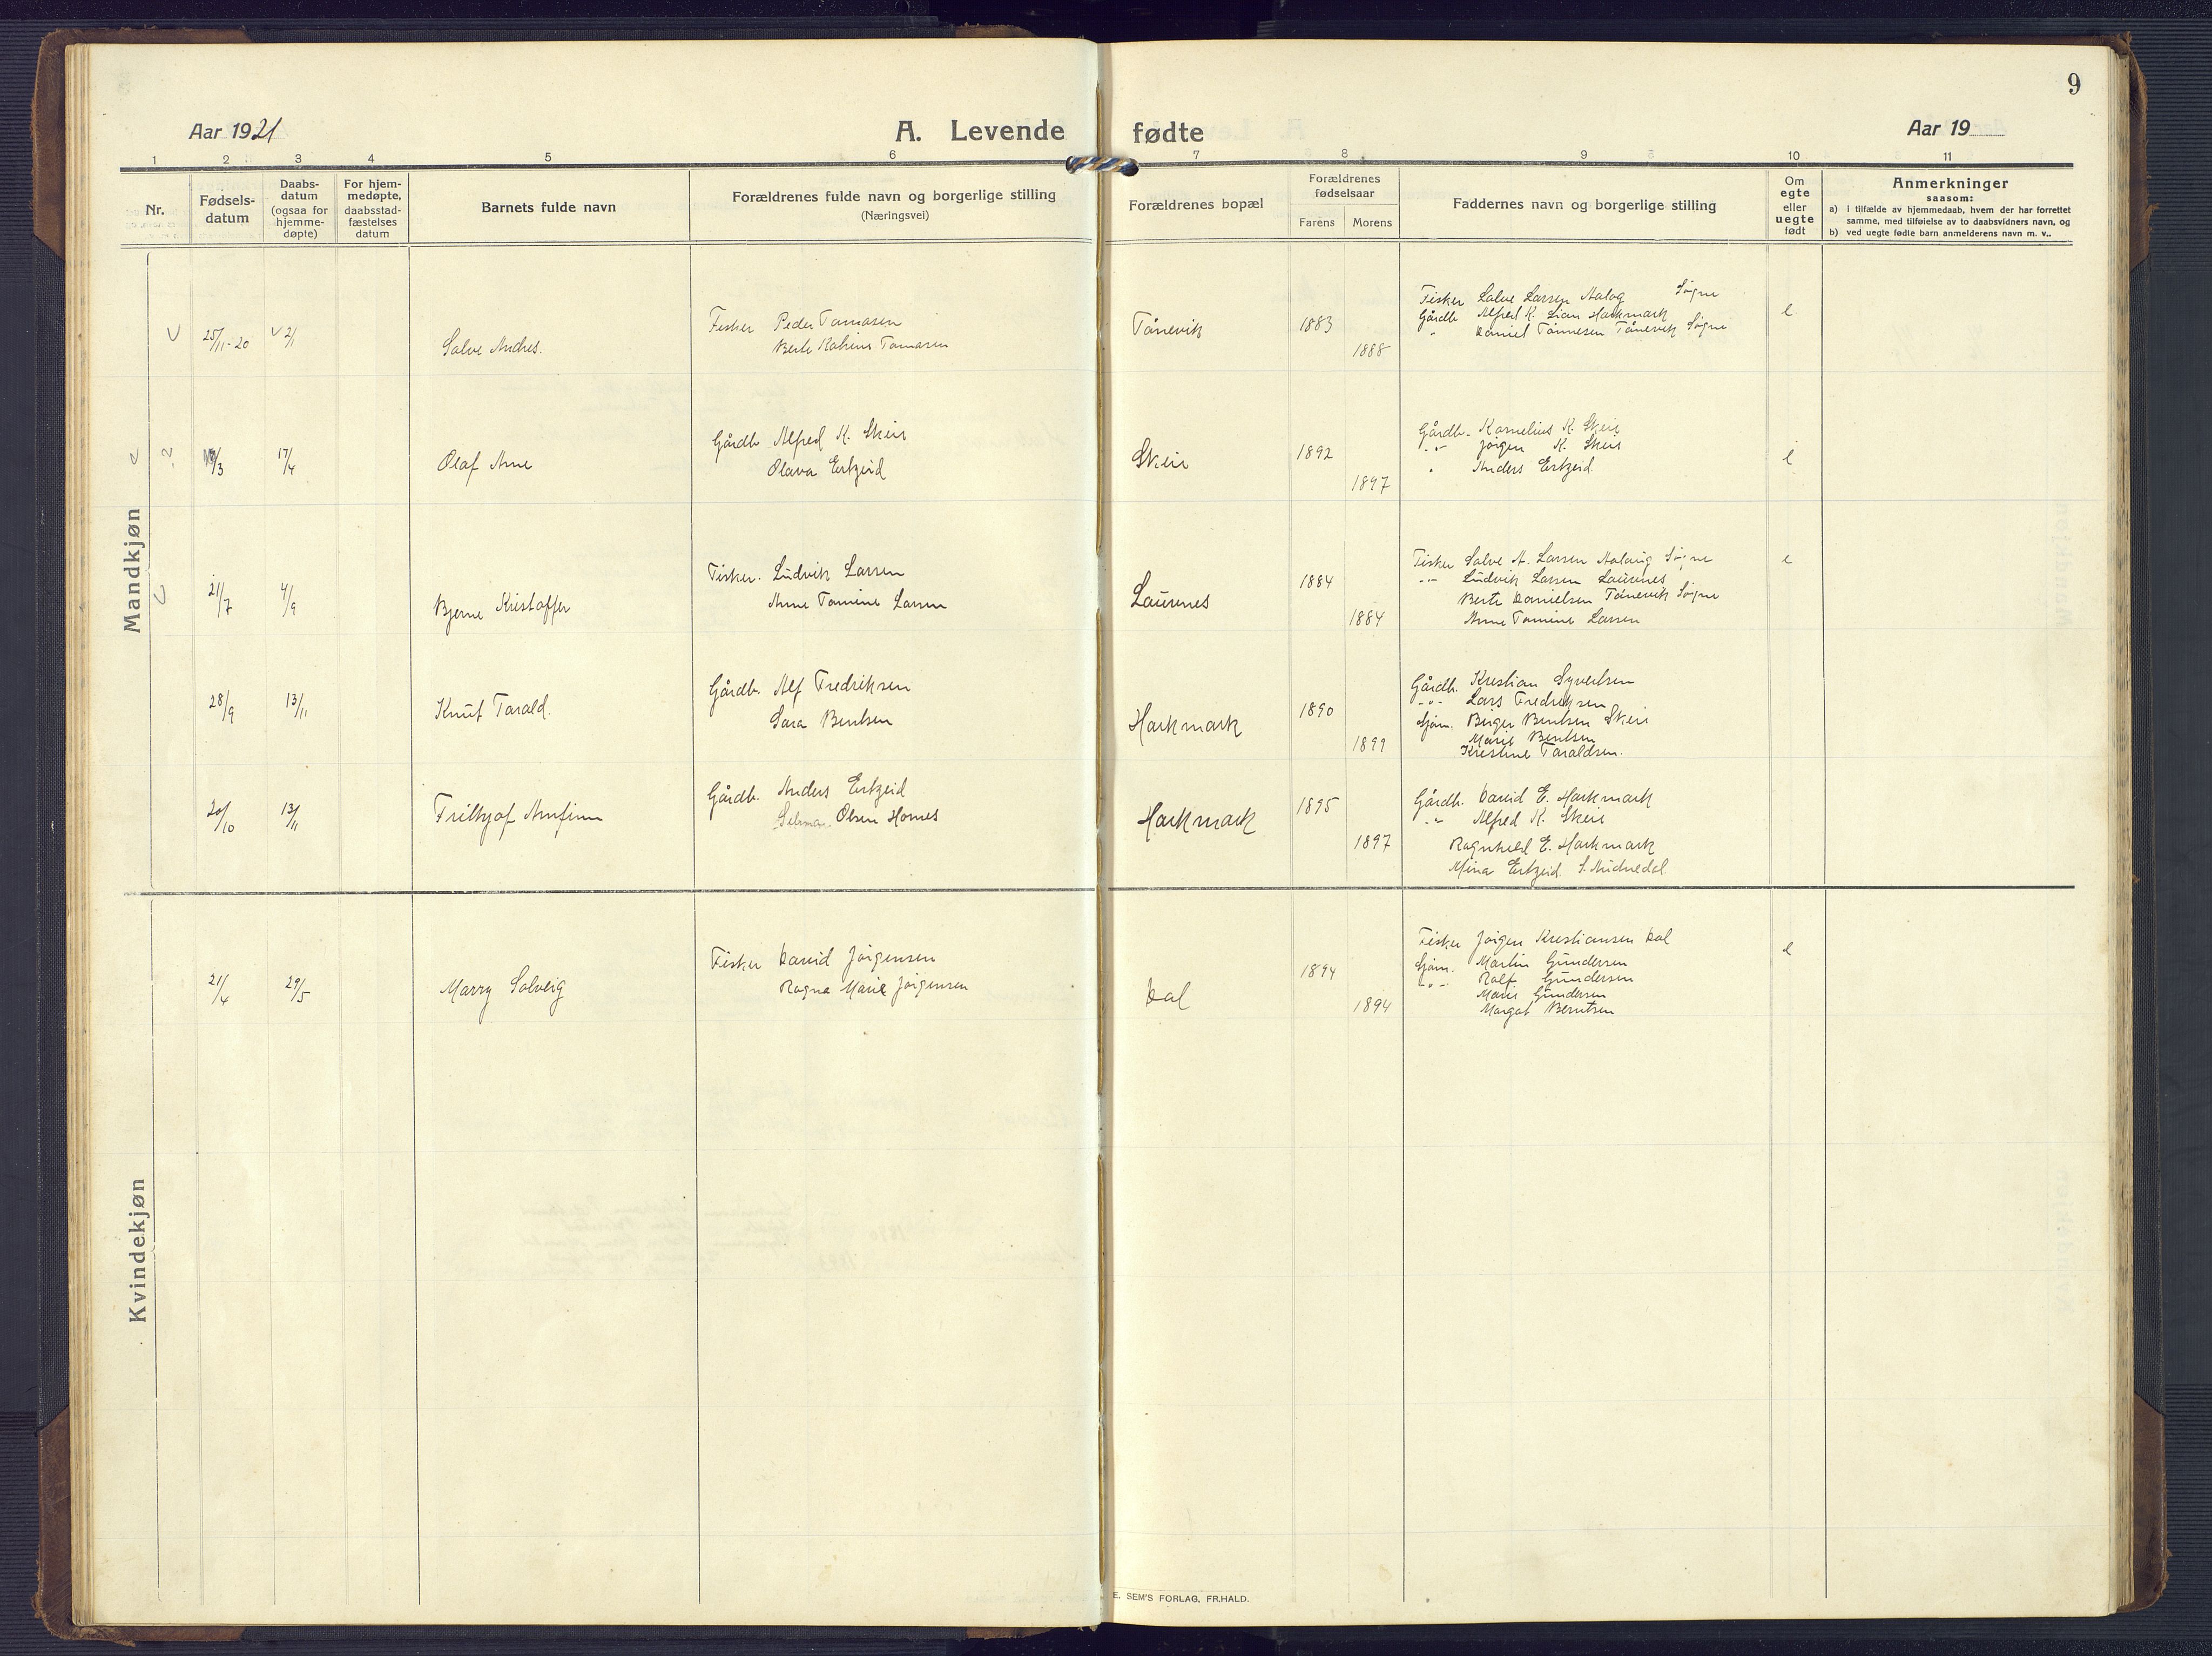 9
Aar 1921
A. Levende fødte
Aar 19
1 2 3 4 5 6 7 8 9 10 11
Nr.
Fødsels-
datum
Daabs-
datum
(ogsaa for
hjemme-
døpte)
For hjem-
medøpte,
daabsstad-
fæstelses
datum
Barnets fulde navn
Forældrenes fulde navn og borgerlige stilling
(Næringsvei)
Forældrenes bopæl
Forældrenes
fødselsaar
Farens Morens
Faddernes navn og borgerlige stilling
Om
egte
eller
uegte
født
Anmerkninger
saasom:
a) i tilfælde av hjemmedaab, hvem der har forrettet
samme, med tilføielse av to daabsvidners navn, og
b) ved uegte fødte barn anmelderens navn m. v..
Mandkjøn
25/11-20 2/1
Salve Andres.
Fisker Peder Tomasen
Berte Katrine Tomasen
Tånevik
1883
1888
Fisker Salve Larsen Aalog Søgne
Gårdb Alfred K. Lian Harkmark
" Daniel Tønnesen Tånevik Søgne
e
/3 17/4
Olaf Arne
Gårdb Alfred K. Skeie
Olava Ertzeid
Skeie
1892
1897
Gårdb. Kornelius K. Skeie
-"- Jørgen K. Skeie
" Anders Ertzeid
e
21/7 4/9
Bjerne Kristoffer
Fisker. Ludvik Larsen
Anne Tomine Larsen
Laurenes
1884
1884
Fisker Salve A. Larsen Aalaug Søgne
-"- Ludvik Larsen Laurenes
Berte Danielsen Tånevik Søgne
Anne Tomine Larsen
e
28/9 13/11
Knut Tarald.
Gårdb. Alf Fredriksen
Sara Bentsen
Harkmark
1890
1899
Gårdb. Kristian Syvertsen
-"- Lars Fredriksen
Sjøm. Birger Bentsen Skeie
Marie Bentsen
Kristine Taraldsen.
20/10 13/11
Frithjof Arnfinn
Gårdb. Anders Ertzeid
Selma Olsen Homes
Harkmark
1895
1897
Gårdb. David E. Harkmark
-"- Alfred K. Skeie
Ragnhild E. Harkmark
Mina Ertzeid S. Audnedal
Kvindekjøn
21/4 29/5
Marry Solveig
Fisker David Jørgensen
Ragna Marie Jørgensen
Dal
1894
1894
Fisker Jørgen Kristiansen Dal
Sjøm. Martin Gundersen
-"- Ralf Gundersen
Marie Gundersen
Margot Berntsen
e
E. SEM'S FORLAG, FR.HALD.